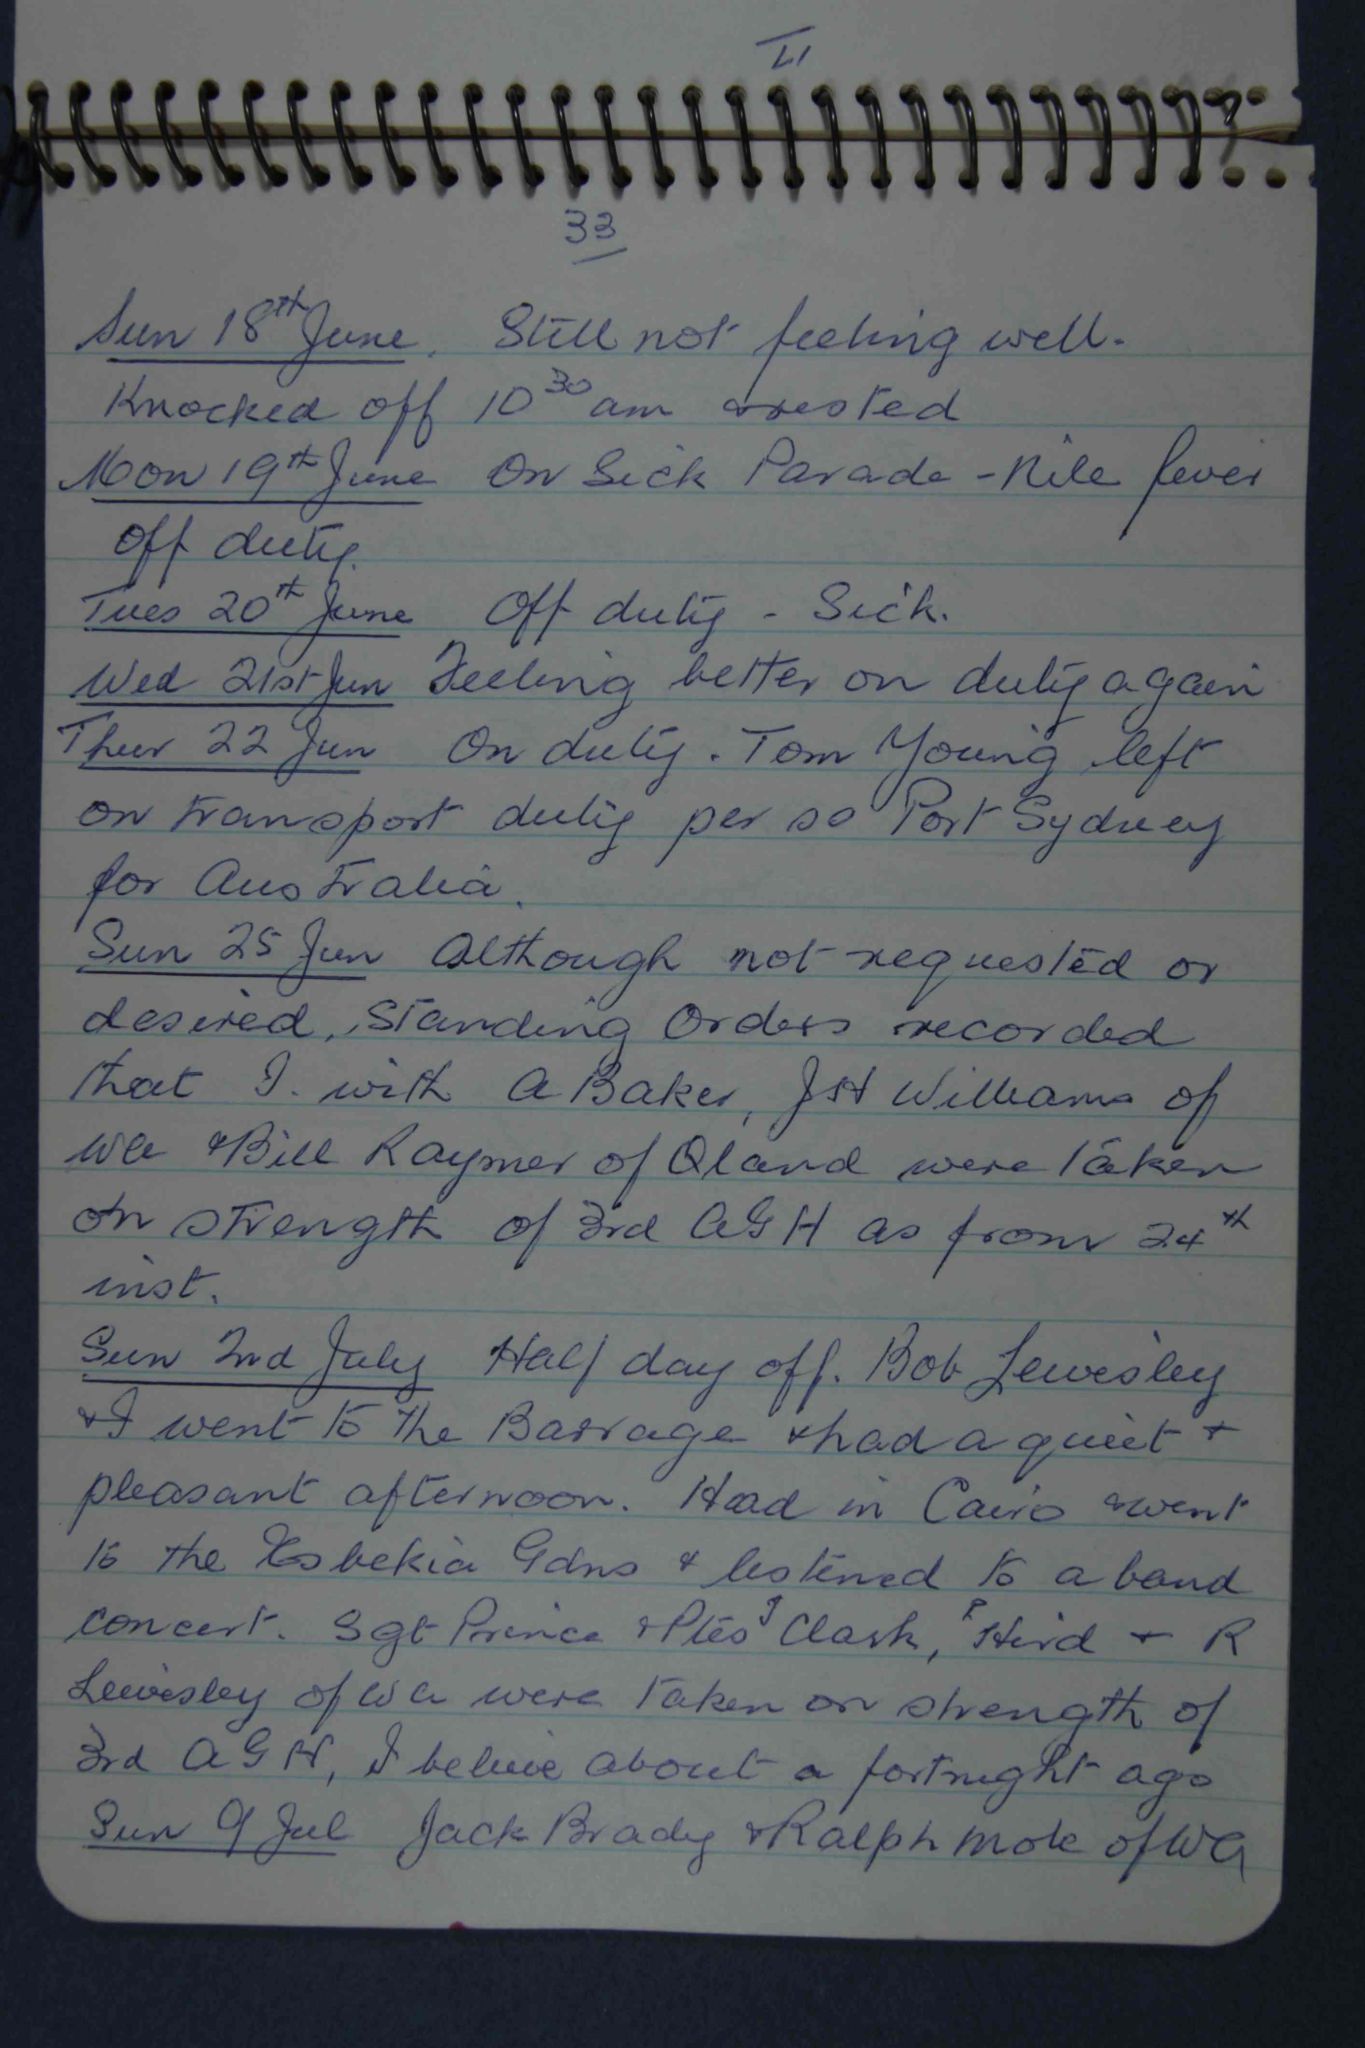 33
Sun 18th June. Still not feeling well.
Knocked off 10 30 am & rested
Mon 19th June On Sick Parade - Nile fever
off duty.
Tues 20th June Off duty - Sick.
Wed 21st Jun Feeling better on duty again
Thur 22 Jun On duty. Tom Young left
on transport duty per ss Port Sydney
for Australia.
Sun 25 Jun Although not requested or
desired, Standing Orders recorded
that I. with A Baker, J H Williams of
WA & Bill Raymer of Qland were taken
on strength of 3rd AGH as from 24th
inst.
Sun 2nd July Half day off. Bob Lewisley
& I went to the Barrage & had a quiet &
pleasant afternoon. Head in Cairo & went
to the Esbekia Gdns & listened to a band
concert. Sgt Prince & Ptes J Clark, P Hird & R
Lewisley of WA were taken on strength of
3rd AGH, I believe about a fortnight ago
Sun 9 Jul Jack Brady & Ralph Mole of WA